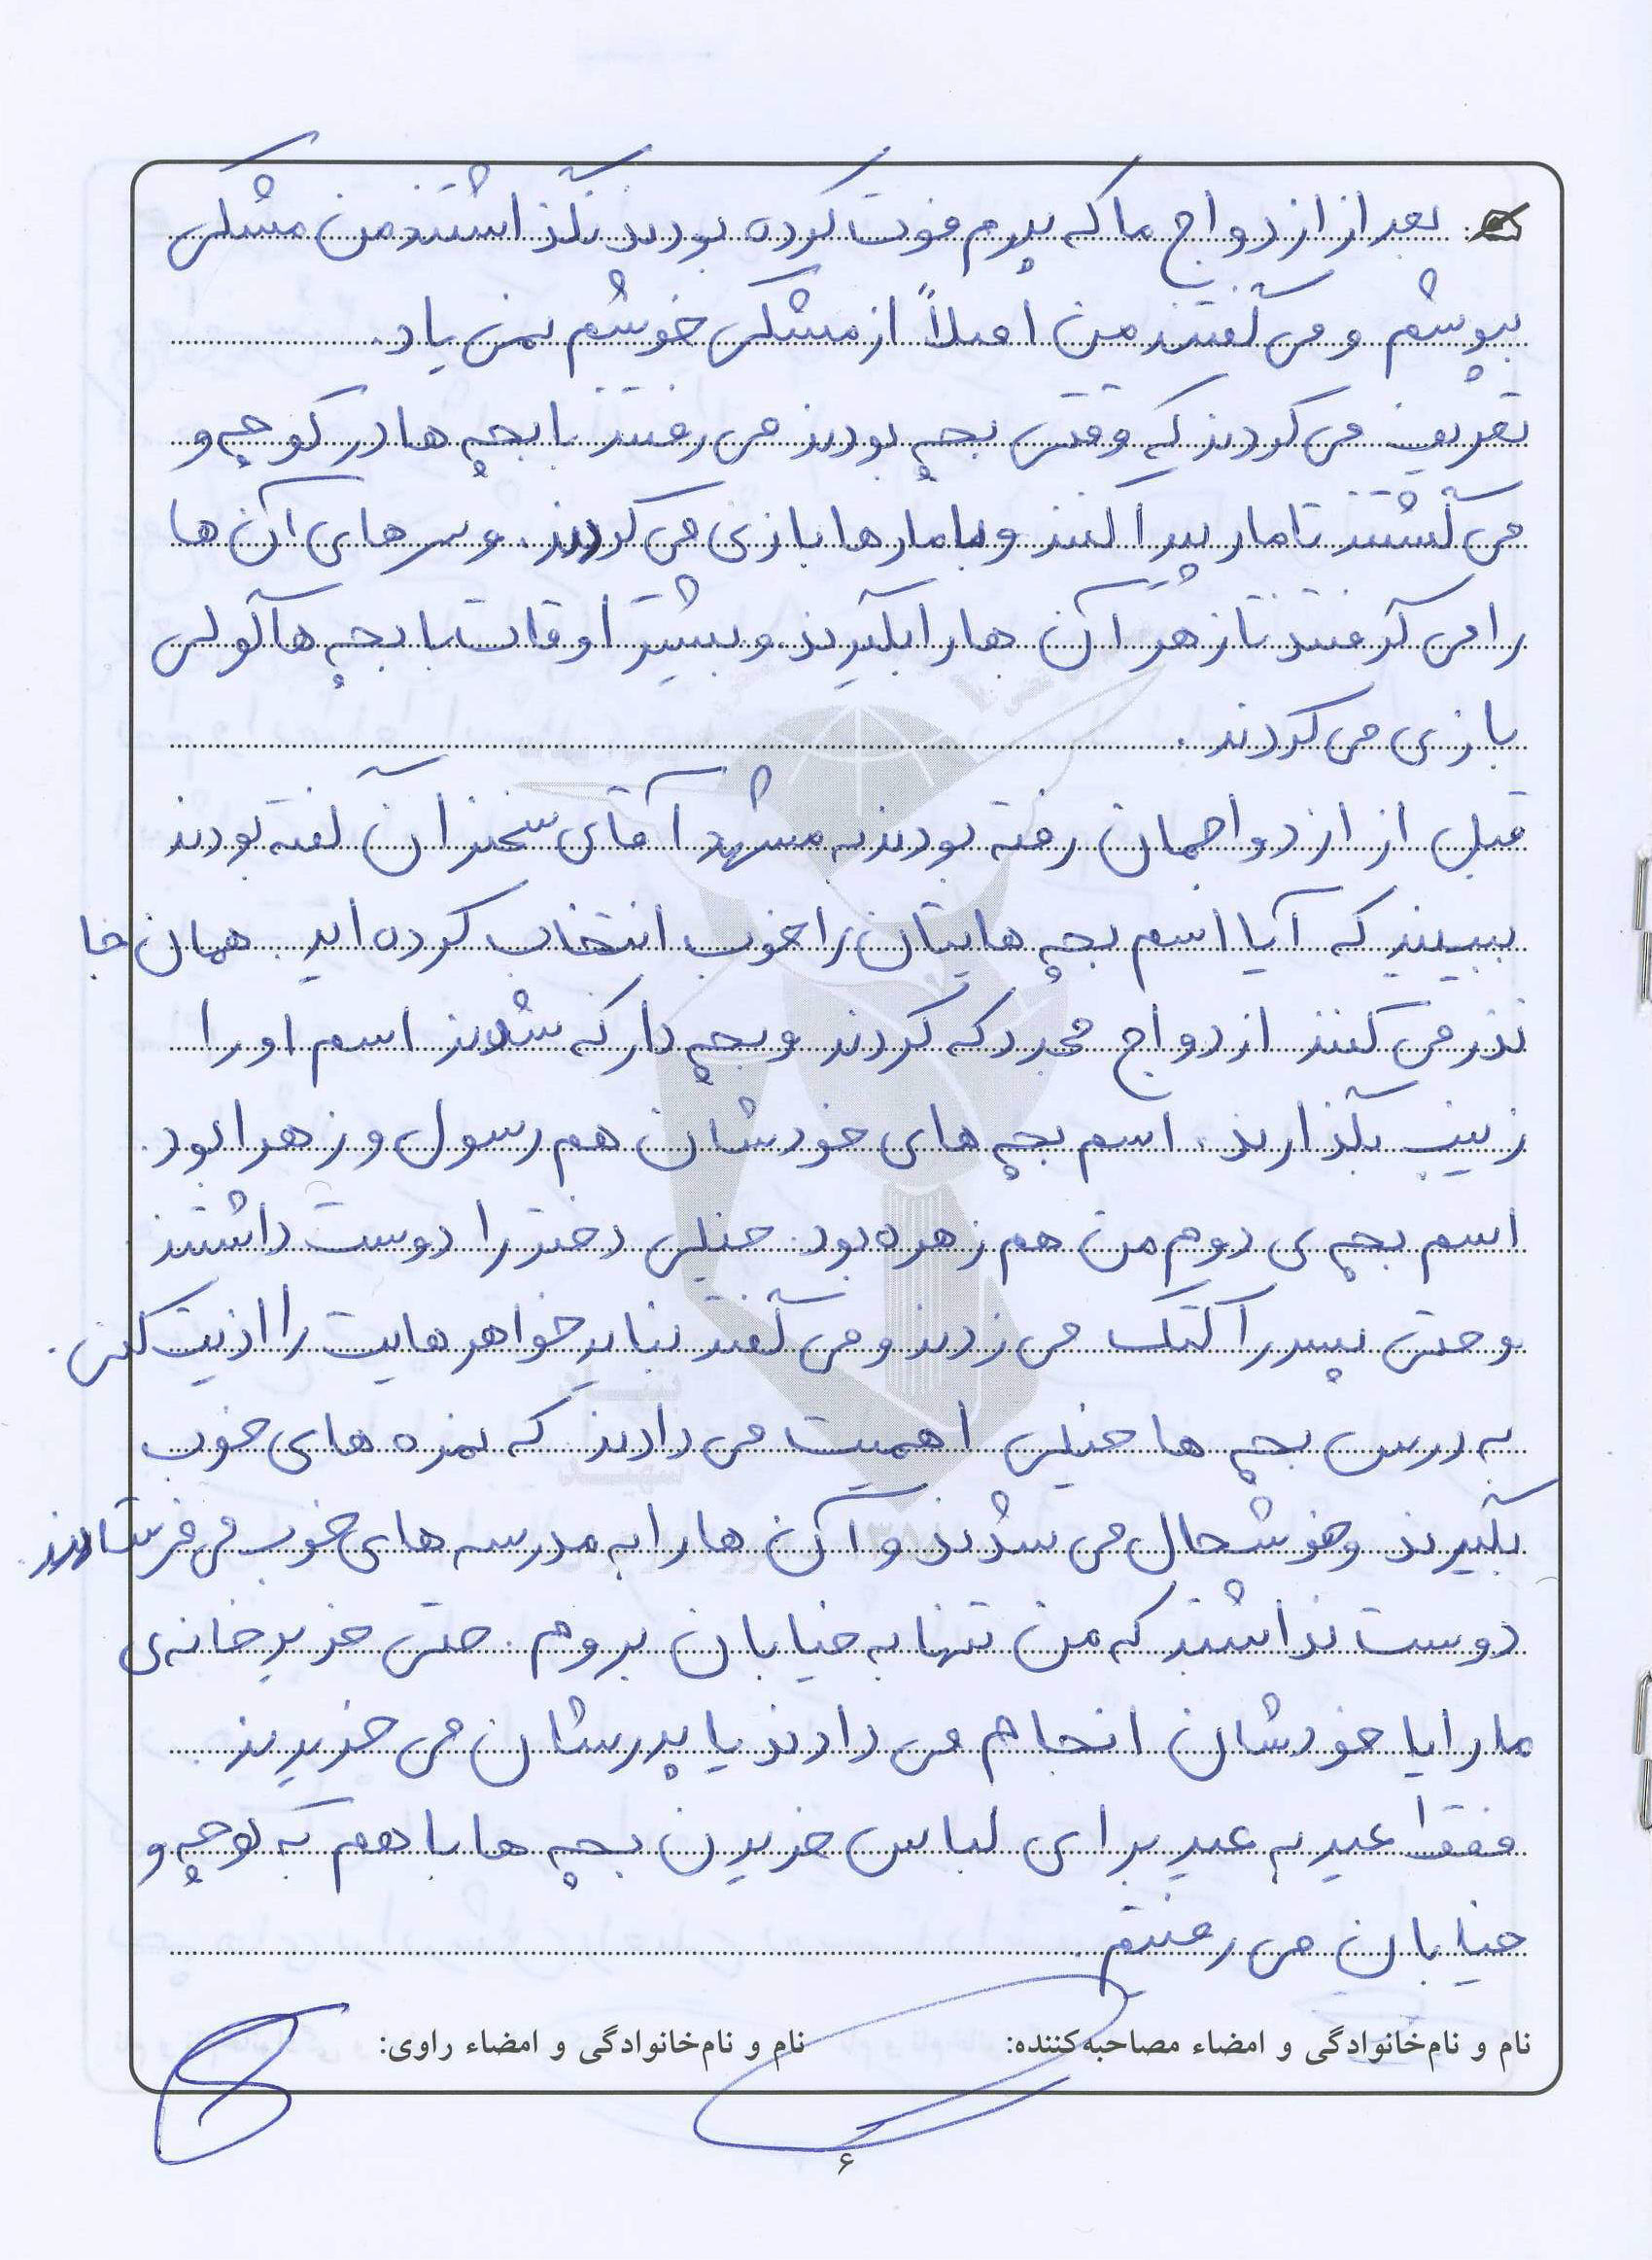 بعد از ازدواج ما که پدرم فوت کرده بودند نگذاشتند من مشکی
بپوشم و می گفتند من اصلاً از مشکی خوشم نمی یاد.
تعریف می کردند که وقتی بچه بودند می رفتند با بچه ها در کوچه و
می گشتند تا مار پیدا کنند و با مارها بازی می کردند. و سرهای آن ها
را می گرفتند تا زهر آن ها را بگیرند و بیشتر اوقات با بچه ها گولی
بازی می کردند.
قبل از ازدواجمان رفته بودند به مشهد آقای سخنران گفته بودند
ببینید که آیا اسم بچه هایتان را خوب انتخاب کرده اید. همان جا
نذر می کنند ازدواج مجدد که کردند و بچه دار که شدند اسم او را
زینب بگذارند. اسم بچه های خودشان هم رسول و زهرا بود.
اسم بچه ی دوم من هم زهره بود. خیلی دختر را دوست داشتند
و حتی پسر را کتک می زدند و می گفتند نباید خواهرهایت را اذیت کنی.
به درس بچه ها خیلی اهمیت می دادند که نمره های خوب
بگیرند و خوشحال می شدند و آن ها را به مدرسه های خوب می فرستادند.
دوست نداشتند که من تنها به خیابان بروم. حتی خرید خانه ی
ما را یا خودشان انجام می دادند یا پدرشان می خریدند.
فقط عید به عید برای لباس خریدن بچه ها با هم به کوچه و
خیابان می رفتیم.
نام و نام‌خانوادگی و امضاء مصاحبه‌کننده: نام و نام‌خانوادگی و امضاء راوی:
۶